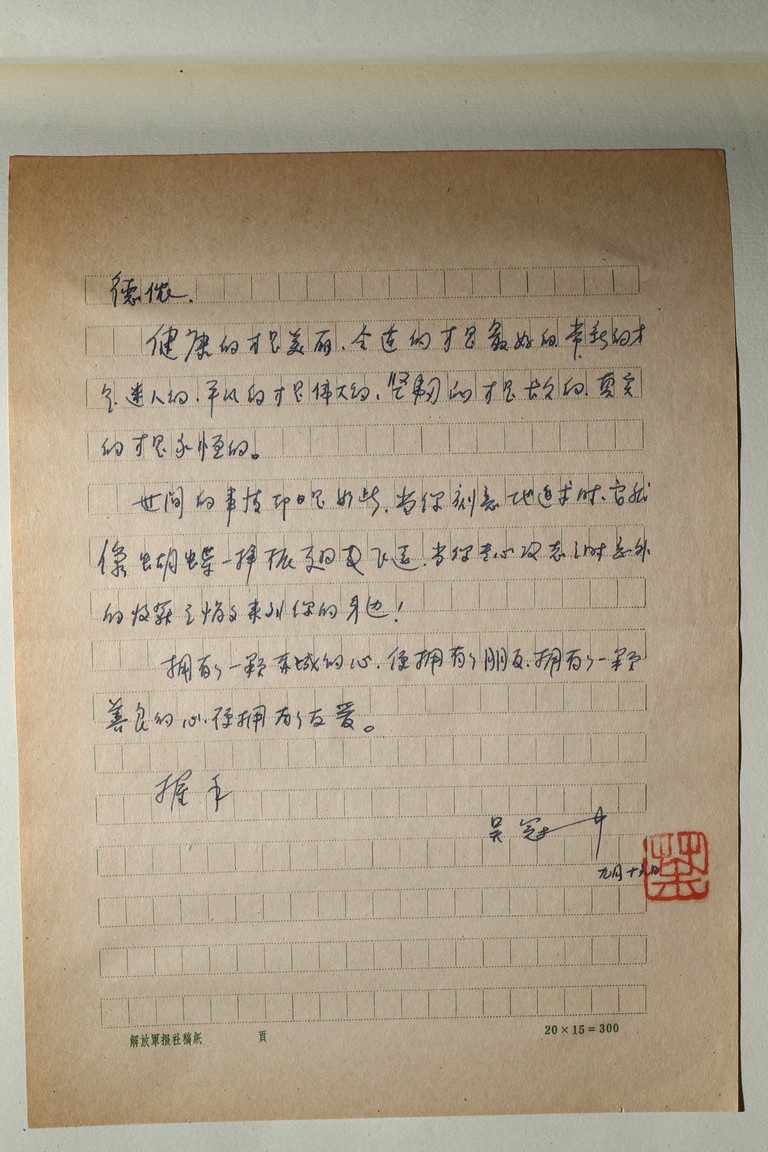 德侬.
健康的才是美丽、合适的才是最好的、常新的才
是迷人的、平凡的才是伟大的、坚韧的才是长久的、真实
的才是永恒的。
世间的事情即是如此、当你刻意地追求时、它就
像蝴蝶一样振翅飞远、当你专心之时意外
的收获已悄悄来到你的身边!
拥有了一颗真诚的心、便拥有了朋友、拥有了一颗
善良的心、便拥有了友爱。
握手
吴冠中
九月十日
解放軍报社稿紙 頁 20×15=300